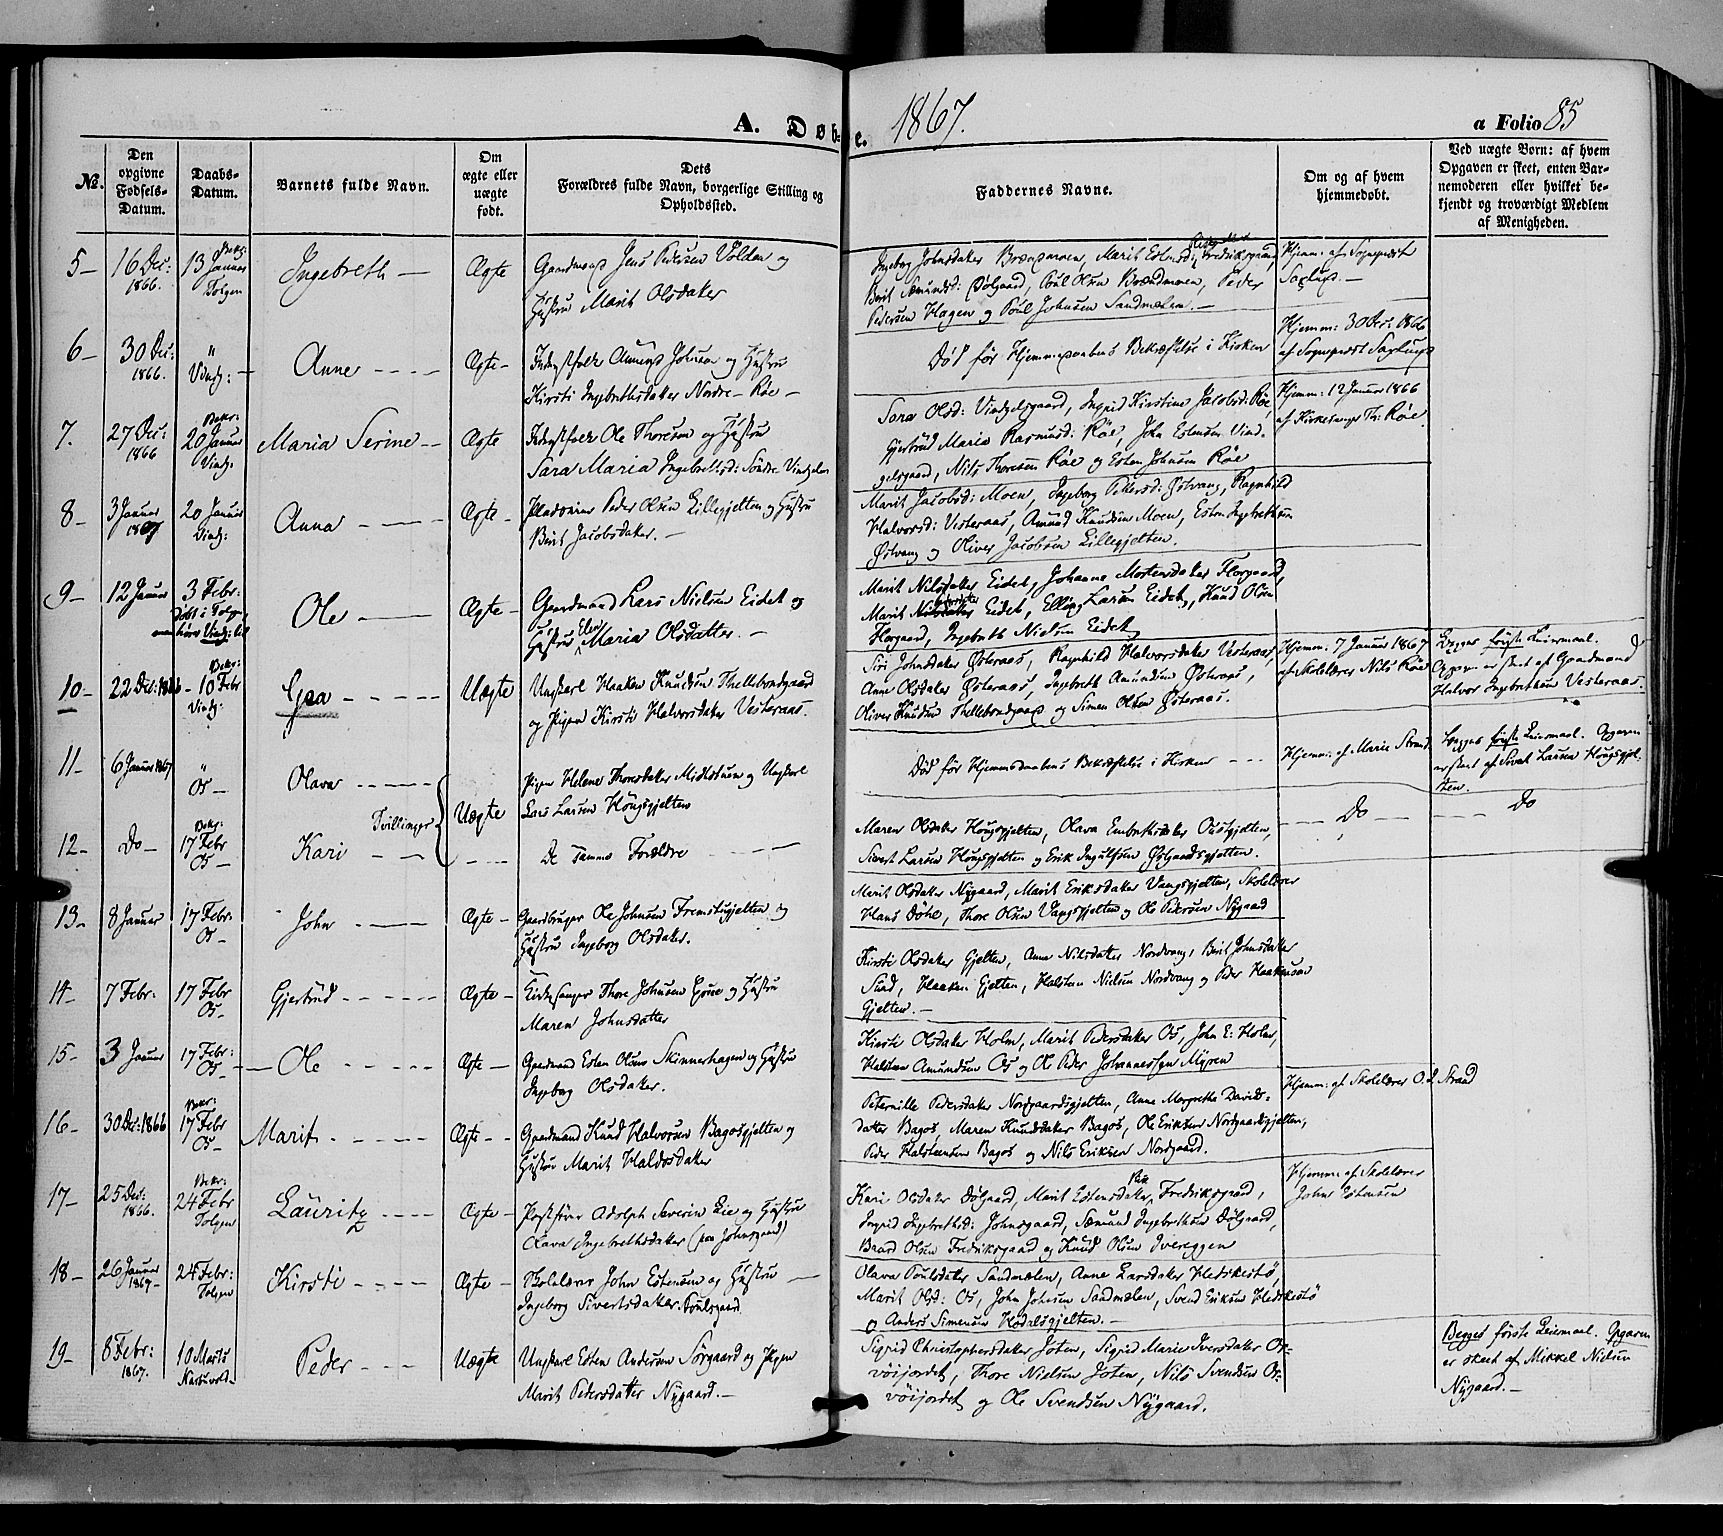 A. Døbte. 1867. a Folio 85
No.
Den opgivne Fødsels-Datum.
Daabs-Datum.
Barnets fulde Navn.
Om ægte eller uægte født.
Dets Forældres fulde Navn, borgerlige Stilling og Opholdssted.
Faddernes Navne.
Om og af hvem hjemmedøbt.
Ved uægte Børn: af hvem Opgaven er skeet, enten Barnemoderen eller hvilket bekjendt og troværdigt Medlem af Menigheden.
5 – 16 Dec: 1866. Bekr: 13 Januar Tolgen Ingebreth – Ægte Gaardmand Jens Pedersen Volden og
Hustru Marit Olsdatter
Ingeborg Johnsdatter Marit Estensd: Fredriksgaard,
Berit Amundsd: Dølgaard, Poul Olsen Peder
Pedersen Hagen og Poul Johnsen Sandmælen. –
Hjem: af Sogneprest
Saxlund. –
6 – 30 Dec: 1866. " Vindg: – Anne – Ægte – Indgstfolk Amund Johnsen og Hustru
Kirsti Ingebrethsdatter Nordre – Røe –
Død før Hjemmedaabens Bekræftelse i Kirken
Hjemm: 30 Dec: 1866
af Sogneprest Saxlund
7. 27 Dec: 1866 Bekr: 20 Januar Vindg. Maria Serine – Ægte Indgstfolk Ole Thoresen og Hustru
Sara Maria Ingebrethsd: Søndre Vingelen
Sara Olsd: Vindgelsgaard, Ingrid Kirstine Jacobsd: Røe,
Gjertrud Maria Rasmusd: Røe, John Estensen Vind-
gelsgaard, Nils Thoresen Røe og Esten Johnsen Røe
Hjemm: 12 Januar 1866
af Kirkesanger Th: Røe.
8 – 3 Januar 1867 20 Januar Vindg: Anna – Ægte – Peder Olsen Lillegjelten og Hustru
Berit Jacobsdatter. –
Marit Jacobsd: Moen, Ingeborg Pedersd: Østvang, Ragnhild
Halvorsd: Vesteraas, Amund Knudsen Moen, Esten Ingebrethsen
Østvang og Oliver Jacobsen Lillegjelten.
9 – 12 Januar 3 Febr: Døbt i Tolgen men hører Vindg: til Ole – Ægte – Gaardmand Lars Nielsen Eidet og
Hustru Elen Maria Olsdatter. –
Marit Nilsdatter Eidet, Johanne Mortensdatter Florgaard,
Marit Eidet, Elling Larsen Eidet, Knud Olsen
Florgaard, Ingebreth Nielsen Eidet
10 – 22 Dec: 1866 Bekr: – 10 Febr Vindg: Goa – Uægte Ungkarl Haaken Knudsen Thellebondgaard
og Pigen Kirsti Halvorsdatter Vesteraas.
Siri Johnsdatter Østeraas, Ragnhild Halvorsdatter Vesteraas,
Anne Olsdatter Østeraas, Ingebreth Amundsen Østeraas,
Oliver Knudsen Thellebondgaard og Simen Olsen Østeraas.
Hjemm: 7 Januar 1867
af Skolelærer Nils Røe
Begges første Leiermaal.
Opgn: er skeet af Gaardmand
Halvor Ingebrethsen Vesteraas.
11 – 6 Januar 1867 " Os – Olava – Pigen Helene Thoresdatter Midtstuen og Ungkarl
Tvillinger Uægte Lars Larsen Hougsgjelten
Død før Hjemmedaabens Bekræftelse i Kirken –
Hjemm: af Marie Strand
Begges første Leiermaal. Opgaven
er skeet af Sivert Larsen Hougsgjel-
ten.
12 – Do – Bekr: 17 Febr Os – Kari – De samme Forældre –
Maren Olsdatter Hougsgjelten, Olava Embretsdatter Oustgjelten,
Sivert Larsen Hougsgjelten og Erik Ingulfsen Østgaardsgjelten.
– Do –
– Do
13 – 8 Januar 17 Febr: Os – John – Ægte – Gaardbruger Ole Johnsen Fremstugjelten og
Hustru Ingeborg Olsdatter.
Marit Olsdatter Nygaard, Marit Eriksdatter Vangsgjelten, Skolelærer
Hans Døhl, Thore Olsen Vangsgjelten og Ole Pedersen Nygaard
14 – 7 Febr: 17 Febr Os – Gjertrud – Ægte – Kirkesanger Thore Johnsen og Hustru
Maren Johnsdatter
Kirsti Olsdatter Gjelten, Anne Nilsdatter Nordvang, Berit Johnsdatter
Sund, Haaken Gjelten, Halsteen Nielsen Nordvang og Peder Haakensen
Gjelten. –
15 – 3 Januar 17 Febr: Os – Ole – Ægte – Gaardmand Esten Olsen Skinnerhagen og Hustru
Ingeborg Olsdatter.
Kirsti Olsdatter Holm, Marit Pedersdatter Os, John E: Holm,
Halsteen Amundsen Os og Ole Peder Johannessen Myren
16 – 30 Dec: 1866 Bekr: 17 Febr Os – Marit – Ægte – Gaardmand Knud Halvorsen Bagosgjelten og
Hustru Marit Haldosdatter
Peternille Pedersdatter Nordgaardsgjelten, Anne Margrethe Davids-
datter Bagos, Maren Knudsdatter Bagos, Ole Eriksen Nordgaardsgjelten,
Peder Halsteensen Bagos og Nils Eriksen Nordgaard.
Hjemm: af Skolelærer O. L. Strand
17 – 25 Dec: 1866. Bekr: 24 Febr Tolgen Lauritz – Ægte – Postfører Adolph Severin Lie og Hustru
Olava Ingebrethsdatter (paa Johnsgaard)
Kari Olsdatter Dølgaard, Marit Estensdatter Fredriksgaard,
Ingrid Ingebrethsd: Johnsgaard, Sæmund Ingebrethsen Dølgaard,
Baard Olsen Fredriksgaard og Knud Olsen Ivereggen
Hjemm: af Skolelærer
John Estensen
18 – 26 Januar 1867 – 24 Febr: Tolgen Kirsti – Ægte – Skolelærer John Estensen og Hustru –
Ingeborg Sivertsdatter Poulsgaard
Olava Poulsdatter Sandmælen, Anne Larsdatter Hedskestø,
Marit Olsd: Os, John Johnsen Sandmælen, Svend Eriksen Hedskestø
og Anders Simensen Hodalsgjelten. –
19 – 8 Febr: 1867. 10 Marts Narbuvold – Peder – Uægte Ungkarl Esten Andersen Sørgaard og Pigen
Marit Pedersdatter Nygaard. –
Sigrid Christophersdatter Joten, Sigrid Marie Iversdatter Or-
vöijordet, Thore Nielsen Joten, Nils Svendsen Or-
vöijordet og Ole Svendsen Nygaard.
Begges første Leiermaal. Opgaven
er skeet af Mikkel Nielsen
Nygaard. –